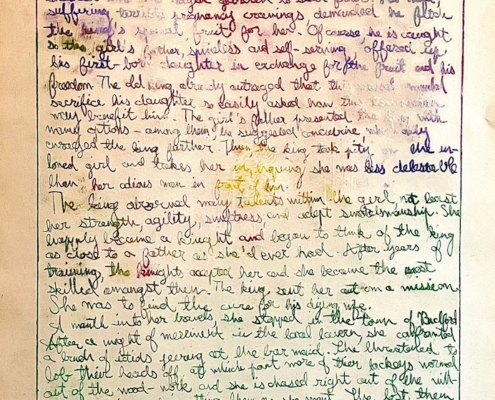 suffering terrible pregnancy cravings demanded he pluck
the king's special fruit for her. Of course he is caught
so the girl's father, spineless and self-serving, offered up
his first-born daughter in exchange for the fruit and his
freedom. The old king, already outraged that this man would
sacrifice his daughter so easily asked how this
may benefit him. The girl's father presented the king with
many options - among them, he suggested concubine which only
enraged the king further. Then the king took pity on the un-
loved girl and takes her in, she was less detestable
than her odious man in front of him.
The king observed many talents within the girl, not least
her strength, agility, swiftness and adept swordsmanship. She
happily became a knight and began to think of the king
as close to a father as she'd ever had. After years of
training, the knights accepted her and she became the most
skilled amongst them. The king sent her out on a mission.
She was to find the cure for his dying wife.
A month into her travels, she stopped in the town of
After a night of merriment in the local tavern, she confronted
a band of idiots leering at the bar maid. She threatened to
lob their heads off, at which point more of their lackeys
out of the wood-work and she is chased right out of the